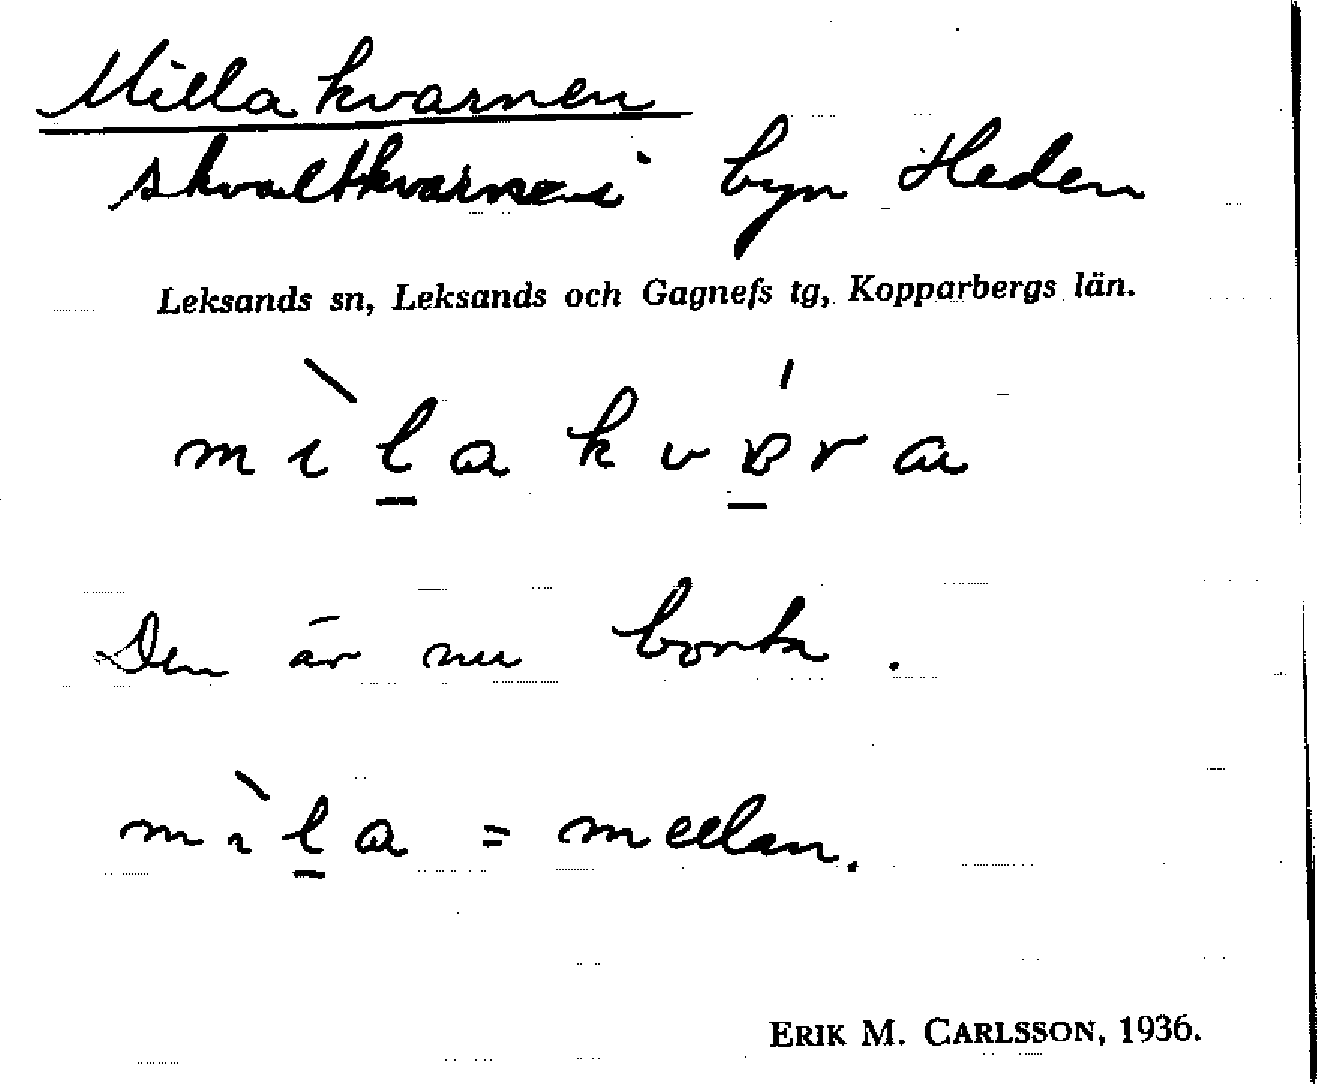 Millakvarnen
skvaltkvarn i byn Heden
Leksands sn, Leksands och Gagnefs tg, Kopparbergs län.
mìla kvɒ́ra
Den är nu borta.
mìla = mellan.
ERIK M. CARLSSON, 1936.